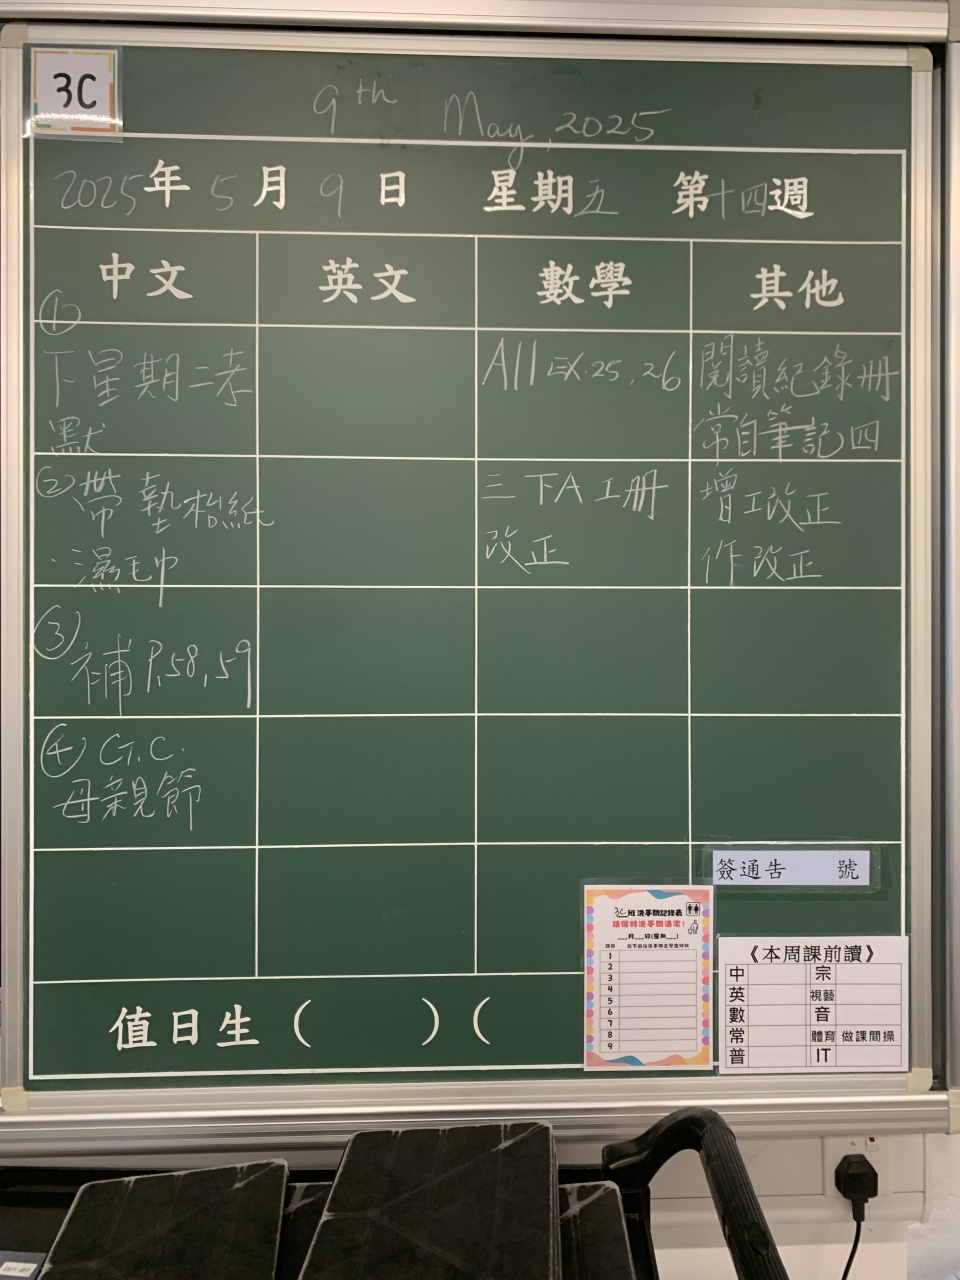 3C
9th May, 2025
2025年 5 月 9 日 星期五 第十四週
中文 英文 數學 其他
①
下星期二考
默
② 帶 墊枱紙
濕毛巾
③
補 P.58, 59
④ G.C.
母親節
All EX.25, 26
三下A工冊
改正
閱讀紀錄冊
常自筆記四
增工改正
作改正
簽通告 號
3C班洗手間記錄表
請保持洗手間清潔!
___月___日(星期___)
1
2
3
4
5
6
7
8
9
《本周課前讀》
中 宗
英 視藝
數 音
常 體育 做課間操
普 IT
值日生( )(